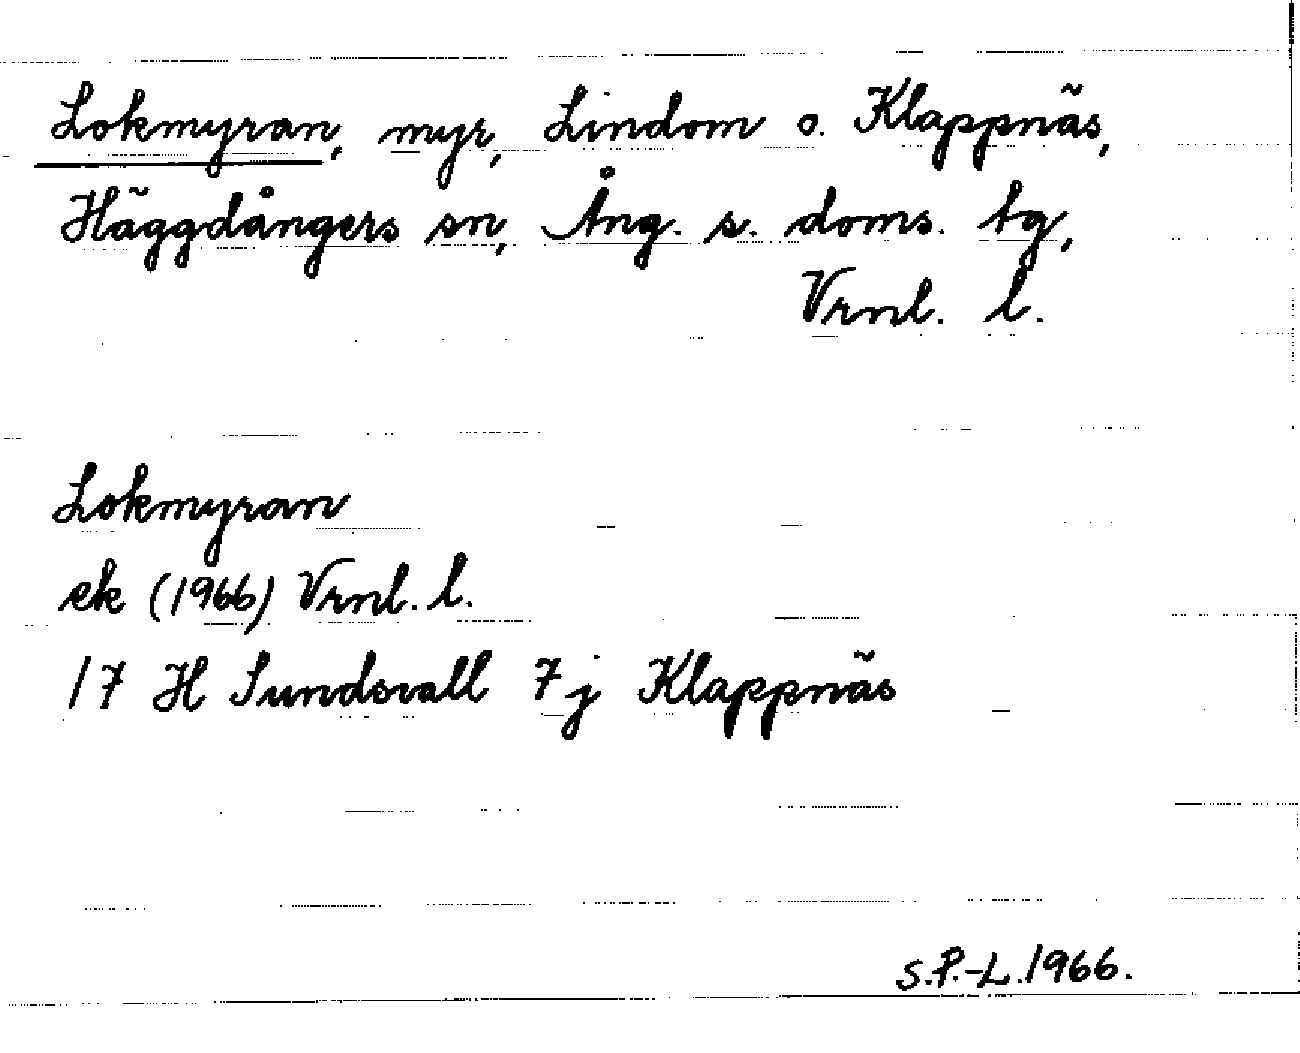 Lokmyran, myr, Lindom o. Klappnäs,
Häggdångers sn, Ång. s. doms. tg,
Vrnl. l.
Lokmyran
ek (1966) Vrnl. l.
17 H Sundsvall 7j Klappnäs
S.P.-L. 1966.